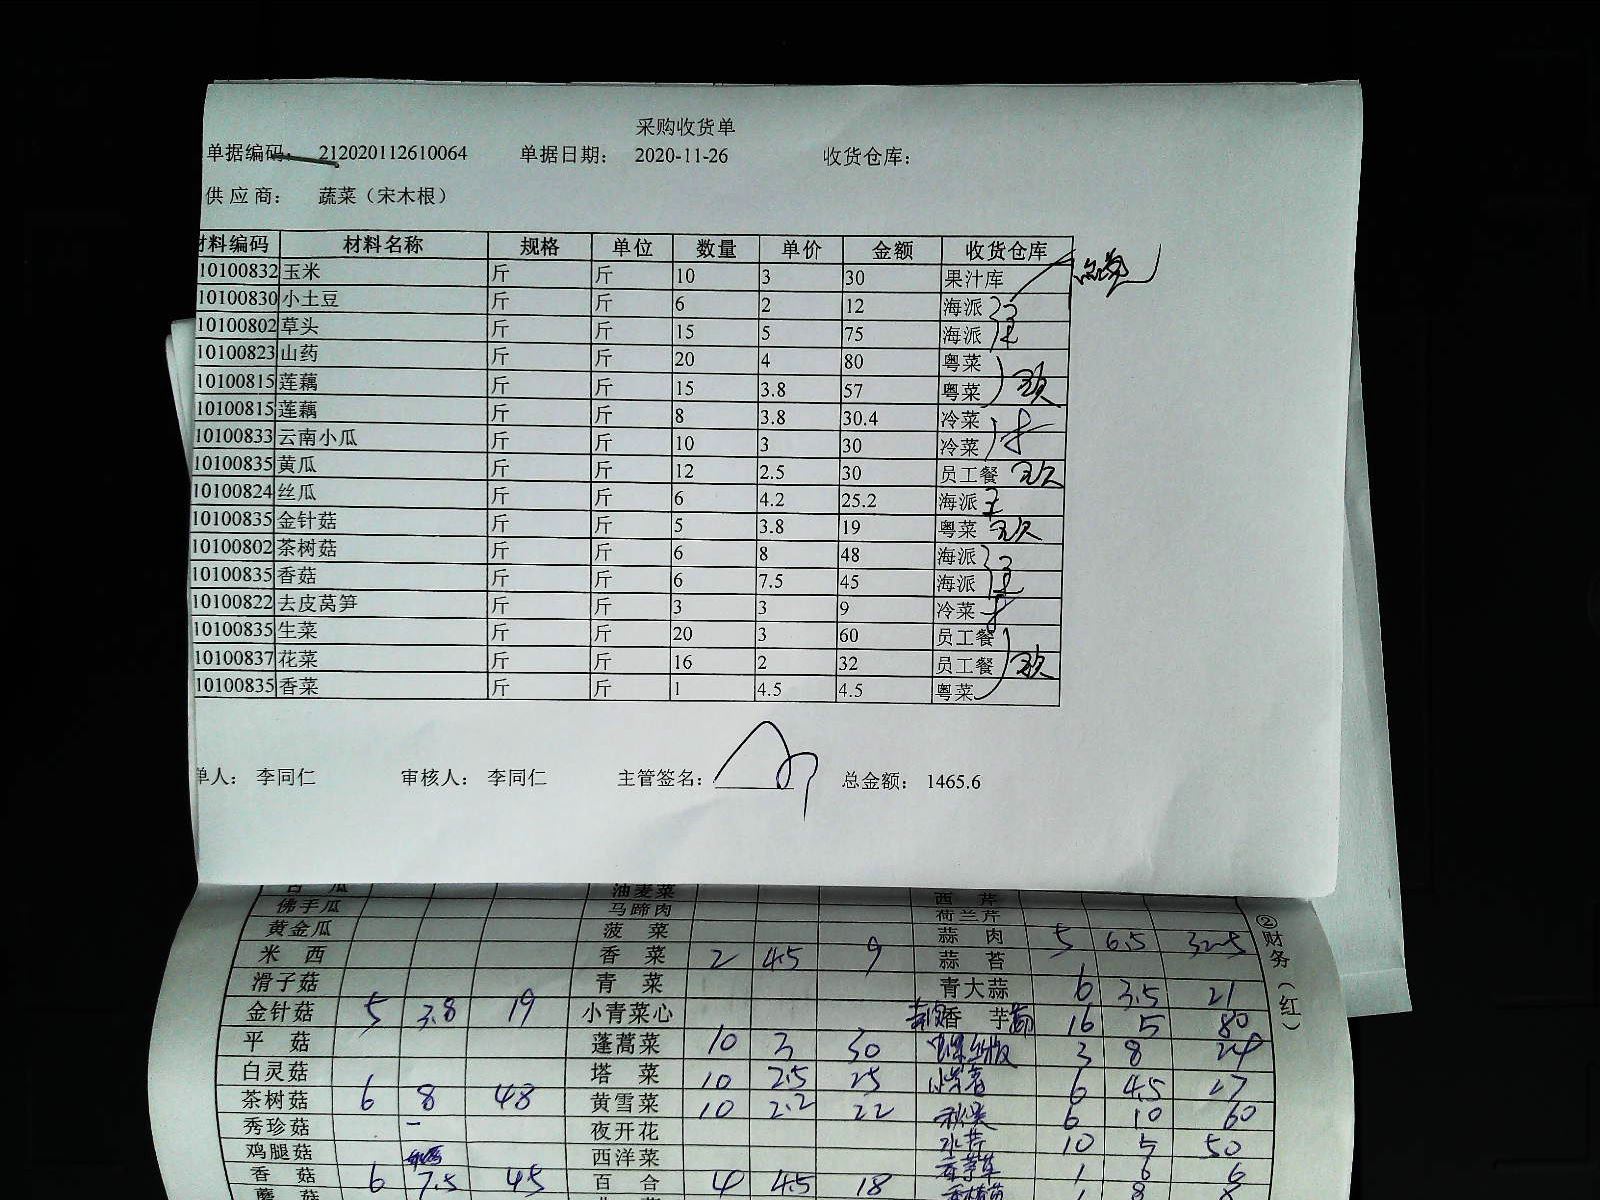 采购收货单
单据编码： 212020112610064 单据日期： 2020-11-26 收货仓库：
供应商： 蔬菜（宋木根）
材料编码 材料名称 规格 单位 数量 单价 金额 收货仓库
10100832 玉米 斤 斤 10 3 30 果汁库
10100830 小土豆 斤 斤 6 2 12 海派
10100802 草头 斤 斤 15 5 75 海派
10100823 山药 斤 斤 20 4 80 粤菜
10100815 莲藕 斤 斤 15 3.8 57 粤菜
10100815 莲藕 斤 斤 8 3.8 30.4 冷菜
10100833 云南小瓜 斤 斤 10 3 30 冷菜
10100835 黄瓜 斤 斤 12 2.5 30 员工餐
10100824 丝瓜 斤 斤 6 4.2 25.2 海派
10100835 金针菇 斤 斤 5 3.8 19 粤菜
10100802 茶树菇 斤 斤 6 8 48 海派
10100835 香菇 斤 斤 6 7.5 45 海派
10100822 去皮莴笋 斤 斤 3 3 9 冷菜
10100835 生菜 斤 斤 20 3 60 员工餐
10100837 花菜 斤 斤 16 2 32 员工餐
10100835 香菜 斤 斤 1 4.5 4.5 粤菜
单人： 李同仁 审核人： 李同仁 主管签名： 总金额： 1465.6
白瓜 油麦菜 西芹
佛手瓜 马蹄肉 荷兰芹
黄金瓜 菠菜 蒜肉 5 6.5 32.5
米西 香菜 2 4.5 9 蒜苔
滑子菇 青菜 青大蒜 6 3.5 21
金针菇 5 3.8 19 小青菜心 香芋 16 5 80
平菇 蓬蒿菜 10 3 30 3 8 24
白灵菇 塔菜 10 2.5 25 6 4.5 27
茶树菇 6 8 48 黄雪菜 10 2.2 22 6 10 60
秀珍菇 夜开花 水芹 10 5 50
鸡腿菇 西洋菜 1 6 6
香菇 6 7.5 45 百合 4 4.5 18 1 8 8
蘑菇
②财务（红）